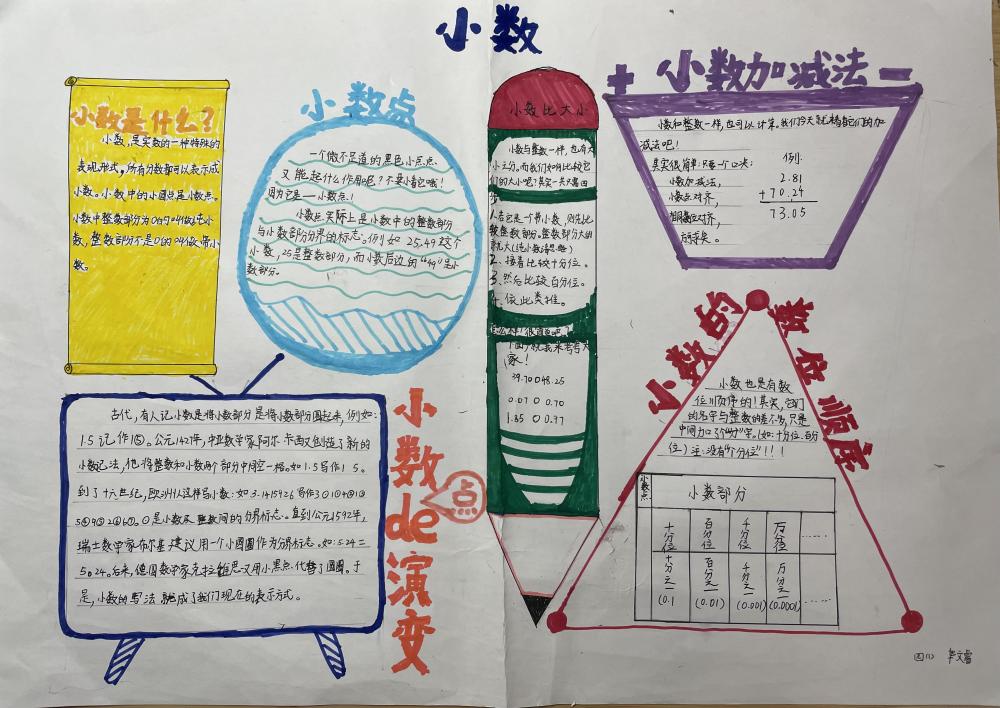 小数
小数是什么？
小数，是实数的一种特殊的
表现形式，所有分数都可以表示成
小数。小数中的小圆点是小数点。
小数中整数部分为0的叫做纯小
数，整数部分不是0的叫做带小
数。
小数点
一个微不足道的黑色小点点
又能起什么作用呢？不要小看它哦！
因为它是——小数点！
小数点实际上是小数中的整数部分
与小数部分分界的标志。例如25.49这个
小数，25是整数部分，而小数后边的“49”是小
数部分。
小数点de演变
古代，有人记小数是将小数部分是将小数部分圈起来，例如：
1.5记作1⑤。公元142件，中亚数学家阿尔卡西又创造了新的
小数记法，他将整数和小数两个部分中间空一格。如1.5写作1 5。
到了十六世纪，欧洲人这样写小数：如3.1415926写作3⓪1①4②1③
是小数及整数间的分界标志。直到公元1592年，
瑞士数学家布尔基建议用一个小圆圈作为分界标志。如：5.24=
5。24。后来，德国数学家克拉维思又用小黑点代替了圆圈。于
是，小数的写法就成了我们现在的表示方式。
小数比大小
小数与整数一样，也有大
小之分。而我们如何比较它
们的大小呢？其实一共只需四
步
1.若它是一个带小数，则先比
较整数部分。整数部分大的
就大
2、接着比较十分位。
3、然后比较百分位。
4、依此类推。
怎么样！很简单吧？
下面，就我来考考大
家！
39.70○48.25
0.07○0.70
1.85○0.97
+小数加减法-
小数和整数一样，也可以计算。我们今天就
减法吧！
其实很简单！只要一个口决：
小数加减法，
小数点对齐，
相同数位对齐，
例：
2.81
+70.24
73.05
小数的数位顺序
小数也是有数
位顺序的！其实，它们
的名字与整数的差不多，只是
中间加了个“分”字。（如：十分位、百分
位）注：没有“个分位”！！！
小数点
小数部分
十分位 百分位 千分位 万分位 ……
十分之一 百分之一 千分之一 万分之一 ……
(0.1 (0.01) (0.001) (0.0001)
四(1)